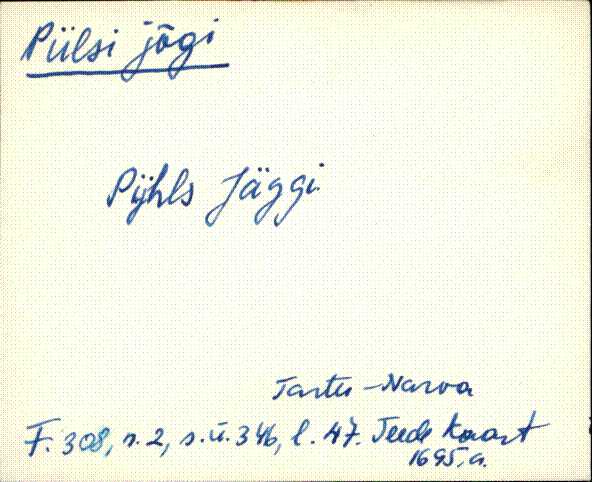 Piilsi jõgi
Pÿhls Jäggi
Tartu – Narva
F. 308, n. 2, s.ü. 346, l. 47. Teede kaart
1695. a.